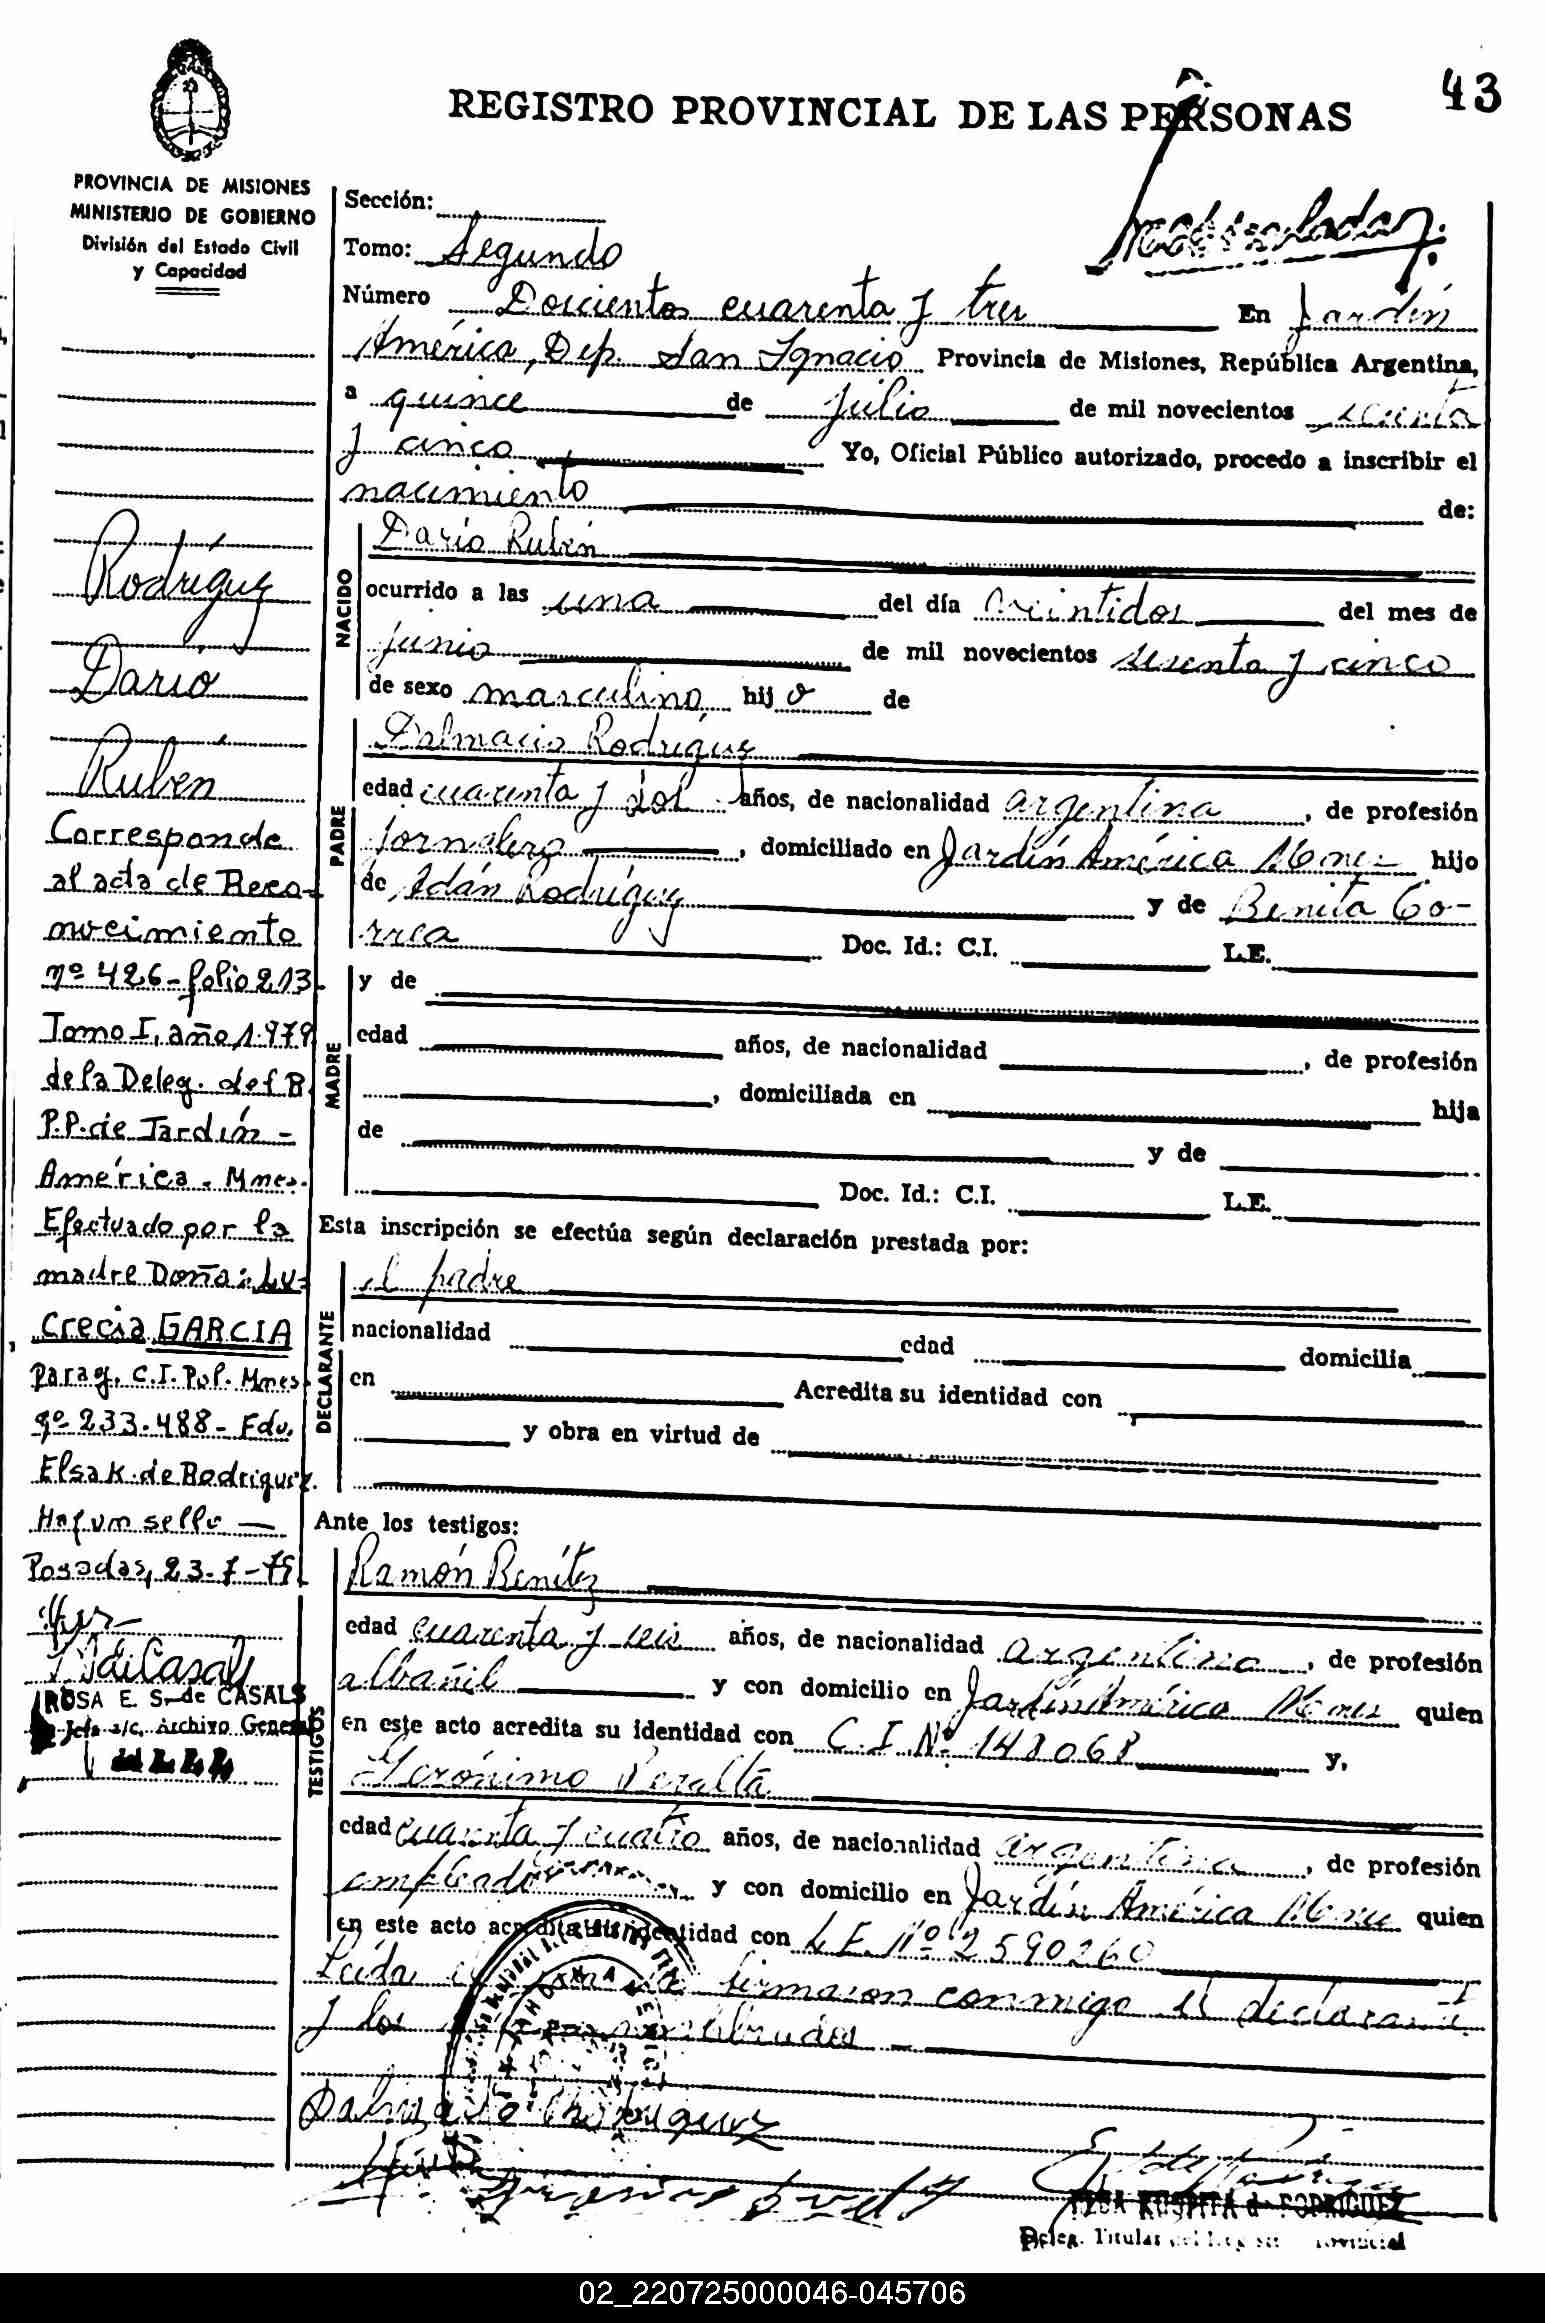 43
REGISTRO PROVINCIAL DE LAS PERSONAS
PROVINCIA DE MISIONES
MINISTERIO DE GOBIERNO
División del Estado Civil
y Capacidad
Sección:
Tomo: Segundo
Número Doscientos cuarenta y tres En Jardín
América, Dep. San Ignacio Provincia de Misiones, República Argentina,
a quince de julio de mil novecientos sesenta
y cinco Yo, Oficial Público autorizado, procedo a inscribir el
nacimiento de:
NACIDO
Darío Rubén
ocurrido a las una del día veintidos del mes de
junio de mil novecientos sesenta y cinco
de sexo masculino hijo de
PADRE
Dalmacio Rodríguez
edad cuarenta y dos años, de nacionalidad argentina, de profesión
jornalero, domiciliado en Jardín América Mones hijo
de Adán Rodríguez y de Benita Co-
rrea Doc. Id.: C.I. L.E.
MADRE
y de
edad años, de nacionalidad , de profesión
, domiciliada en hija
de y de
Doc. Id.: C.I. L.E.
Esta inscripción se efectúa según declaración prestada por:
DECLARANTE
el padre
nacionalidad edad domicilia
en Acredita su identidad con
y obra en virtud de
Ante los testigos:
TESTIGOS
Ramón Benítez
edad cuarenta y seis años, de nacionalidad argentina, de profesión
albañil y con domicilio en Jardín América Mones quien
en este acto acredita su identidad con C.I. Nº 148068 y,
Gerónimo Peralta
edad cuarenta y cuatro años, de nacionalidad argentina, de profesión
empleado y con domicilio en Jardín América Mones quien
en este acto acredita su identidad con L.E. Nº 2590260
Leída firmaron conmigo el declarante
y los
Dalmacio Rodriguez
Deleg. Titular
Rodríguez
Darío
Rubén
Corresponde
al acta de Reco-
nocimiento
nº 426-folio 213-
Tomo I, año 1.979
de la Deleg. del R.
P.P. de Jardín -
América. Mnes.
Efectuado por la
madre Doña: Lu-
crecia GARCIA
Parag. C.I. Pol. Mnes.
nº 233.488- Fdo.
Elsa K. de Rodriguez.
Hay un sello —
Posadas, 23-7-79
ROSA E. S. de CASALS
Jefa a/c. Archivo General
02_220725000046-045706